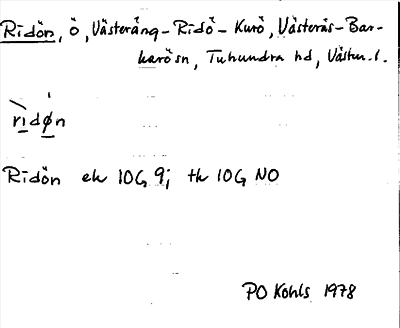 Ridön, ö, Västerånq-Ridö-Kurö, Västerås-Bar-
karö sn, Tuhundra hd, Västm.l.
ridøn
Ridön ek 10G 9i tk 10G NO
PO Kohls 1978